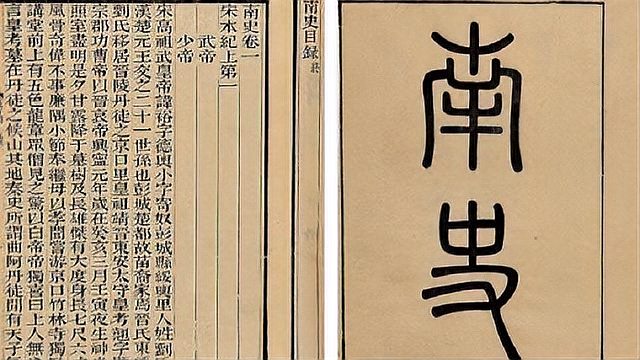 南史
南史目録
南史卷一
宋本紀上第一
武帝
少帝
宋高祖武皇帝諱裕字德輿小字寄奴彭城縣綏輿里人姓劉
漢楚元王交之二十一世孫也彭城楚都故苗裔家焉晉氏東
劉氏移居晉陵丹徒之京口里皇祖靖晉東安太守皇考翹字
宗郡功曹帝以晉哀帝興寧元年歲在癸亥三月壬寅夜生神
照室盡明是夕甘露降于墓樹及長雄傑有大度身長七尺六
風骨奇偉不事廉隅小節奉繼母以孝聞嘗游京口竹林寺獨
講堂前上有五色龍章眾僧見之驚以白帝帝獨喜曰上人無
言皇考墓在丹徒之候山其地秦史所謂曲阿丹徒間有天子